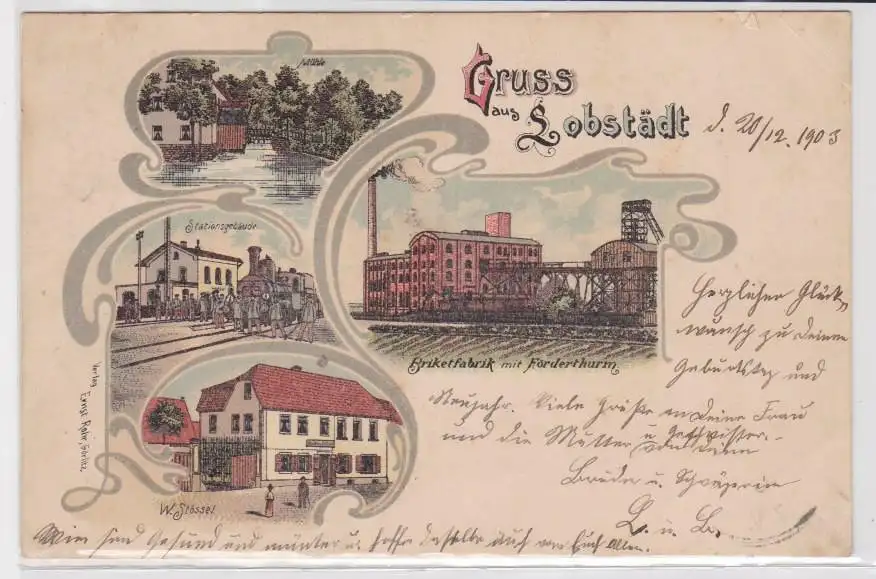 Mühle
Gruss
aus
Lobstädt
d. 20/12. 1903
Stationsgebäude
Briketfabrik mit Förderthurm
W. Stössel
Verlag Ernst
Herzlichen Glück-
wunsch zu deinem
Geburtstag und
Neujahr. Viele Grüße an deine Frau
und die Mutter u Geschwister.
von deine
Bruder u. Schwägerin
L. u. B.
Wir sind Gesund und munter u. hoffe dasselbe auch von Euch Allen.